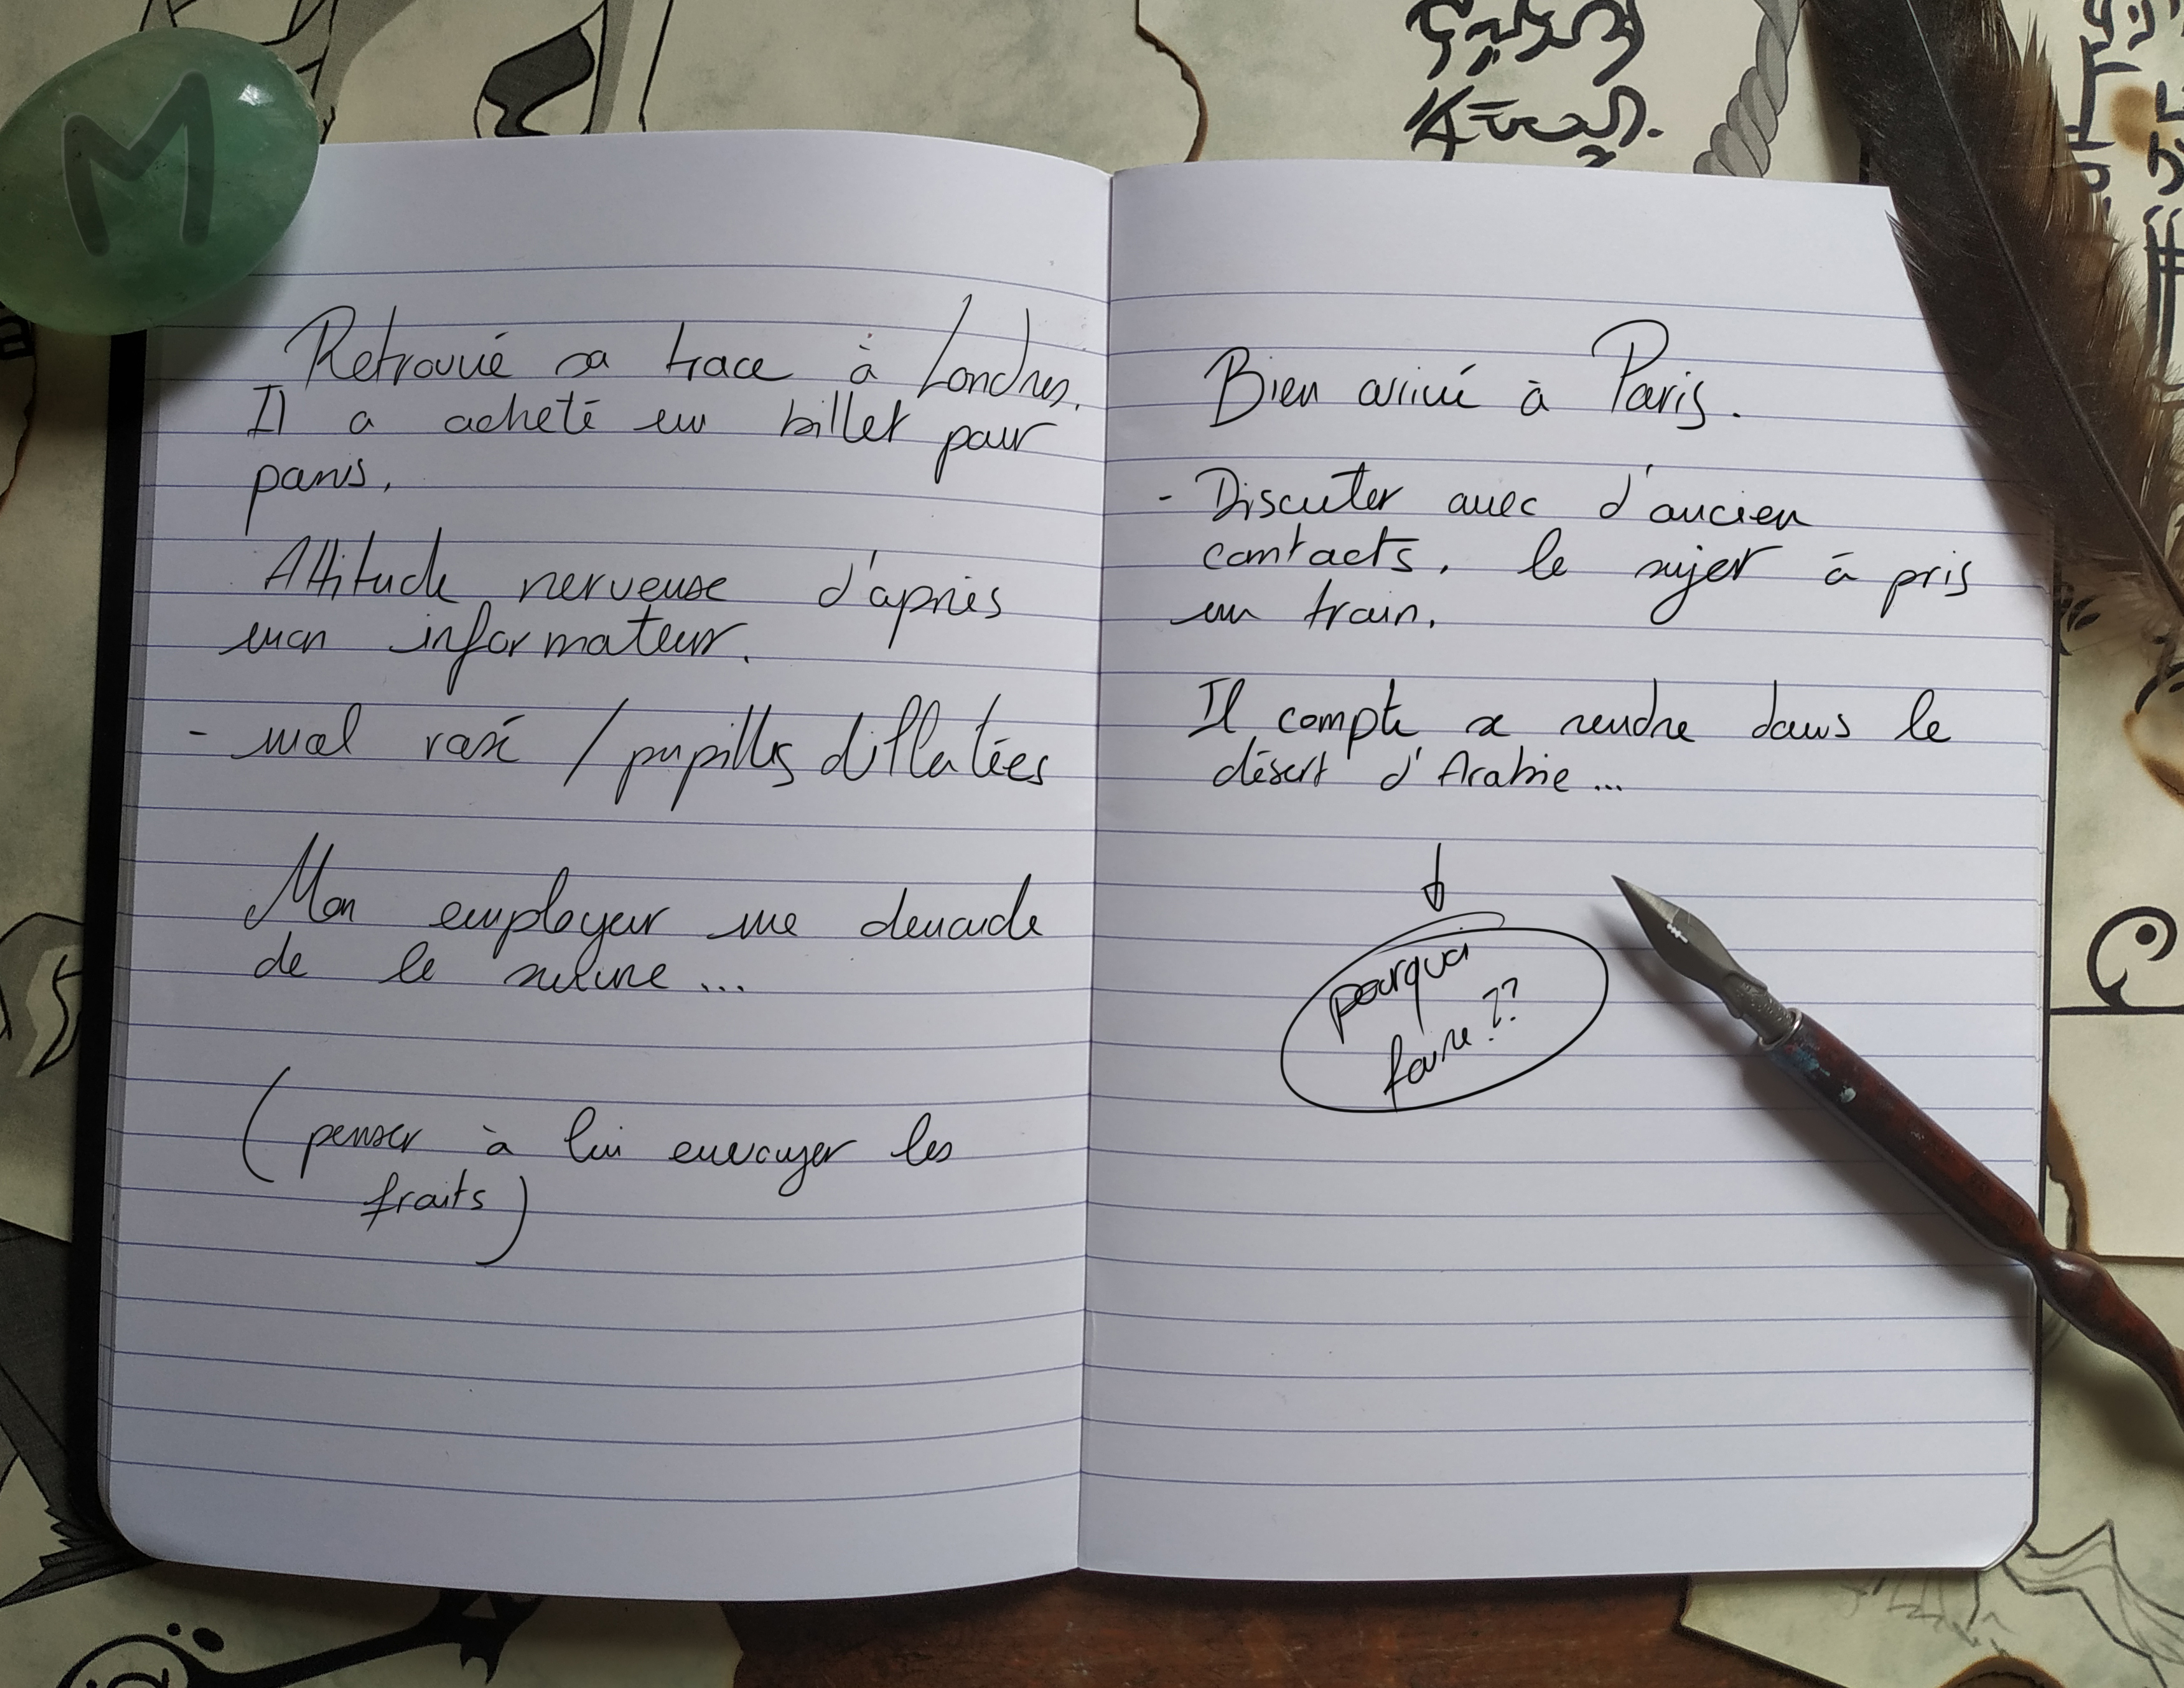 Retrouvé sa trace à Londres.
Il a acheté un billet pour
paris.
Attitude nerveuse d'après
mon informateur.
- mal rasé / pupilles dillatées
Mon employeur me demande
de le suivre...
(penser à lui envoyer les
fraits)
Bien arrivé à Paris.
- Discuter avec d'ancien
contacts, le sujet à pris
un train.
Il compte se rendre dans le
désert d'Arabie...
pourquoi
faire??